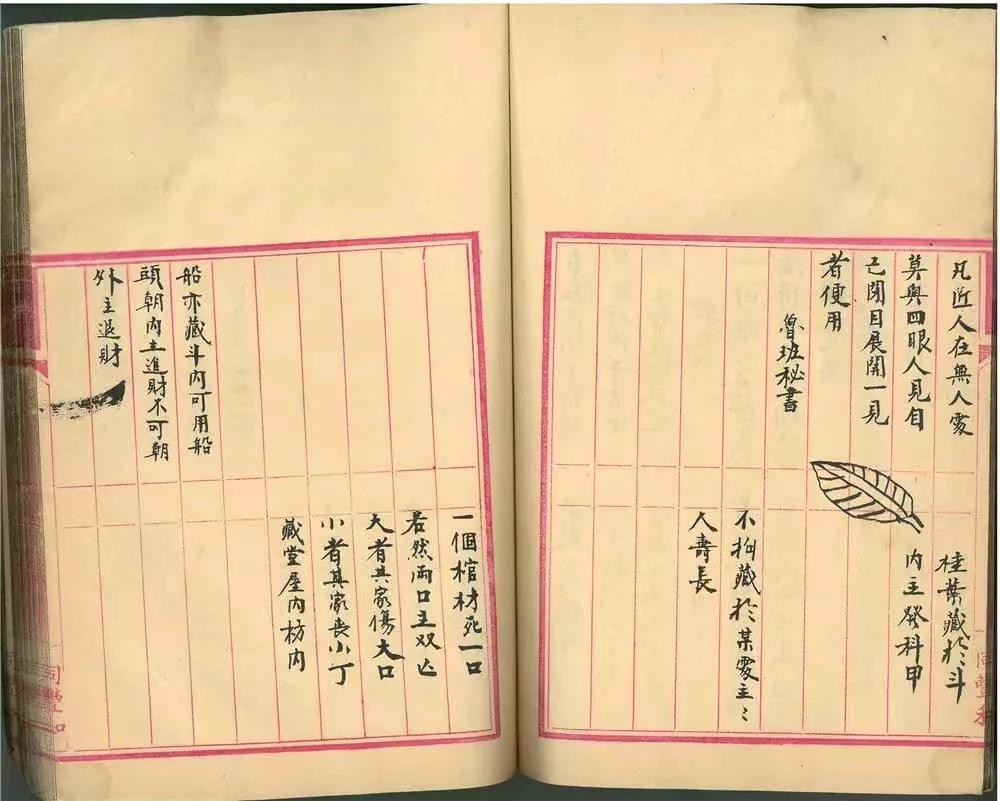 凡匠人在無人處
莫與四眼人見自
己閉目展開一見
者便用
魯班秘書
桂葉藏於斗
內主發科甲
不拘藏於某處主〻
人壽長
一個棺材死一口
若然兩口主双亡
大者其家傷大口
小者其家丧小丁
藏堂屋內枋內
船亦藏斗內可用船
頭朝內主進財不可朝
外主退財
同豐和
同豐和